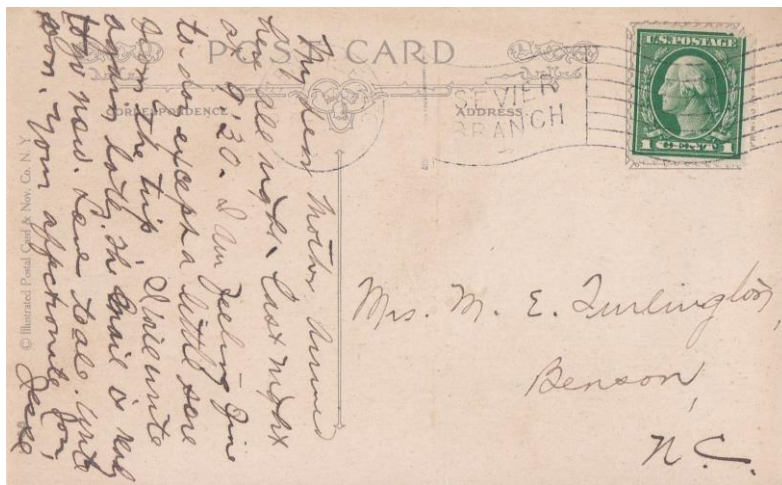 POST CARD
CORRESPONDENCE
ADDRESS
SEVIER
BRANCH
U.S. POSTAGE
1 CENT 1
© Illustrated Postal Card & Nov. Co. N.Y.
My Dear Mother Arrived
here all right. Last night
at 9:30. I am feeling fine
to day except a little sore
from the trip. I will write
again later. The mail is ready
to go now. Love to all. Write
soon. Your affectionate son,
Jesse
Mrs. M. E. Turlington,
Benson,
N.C.